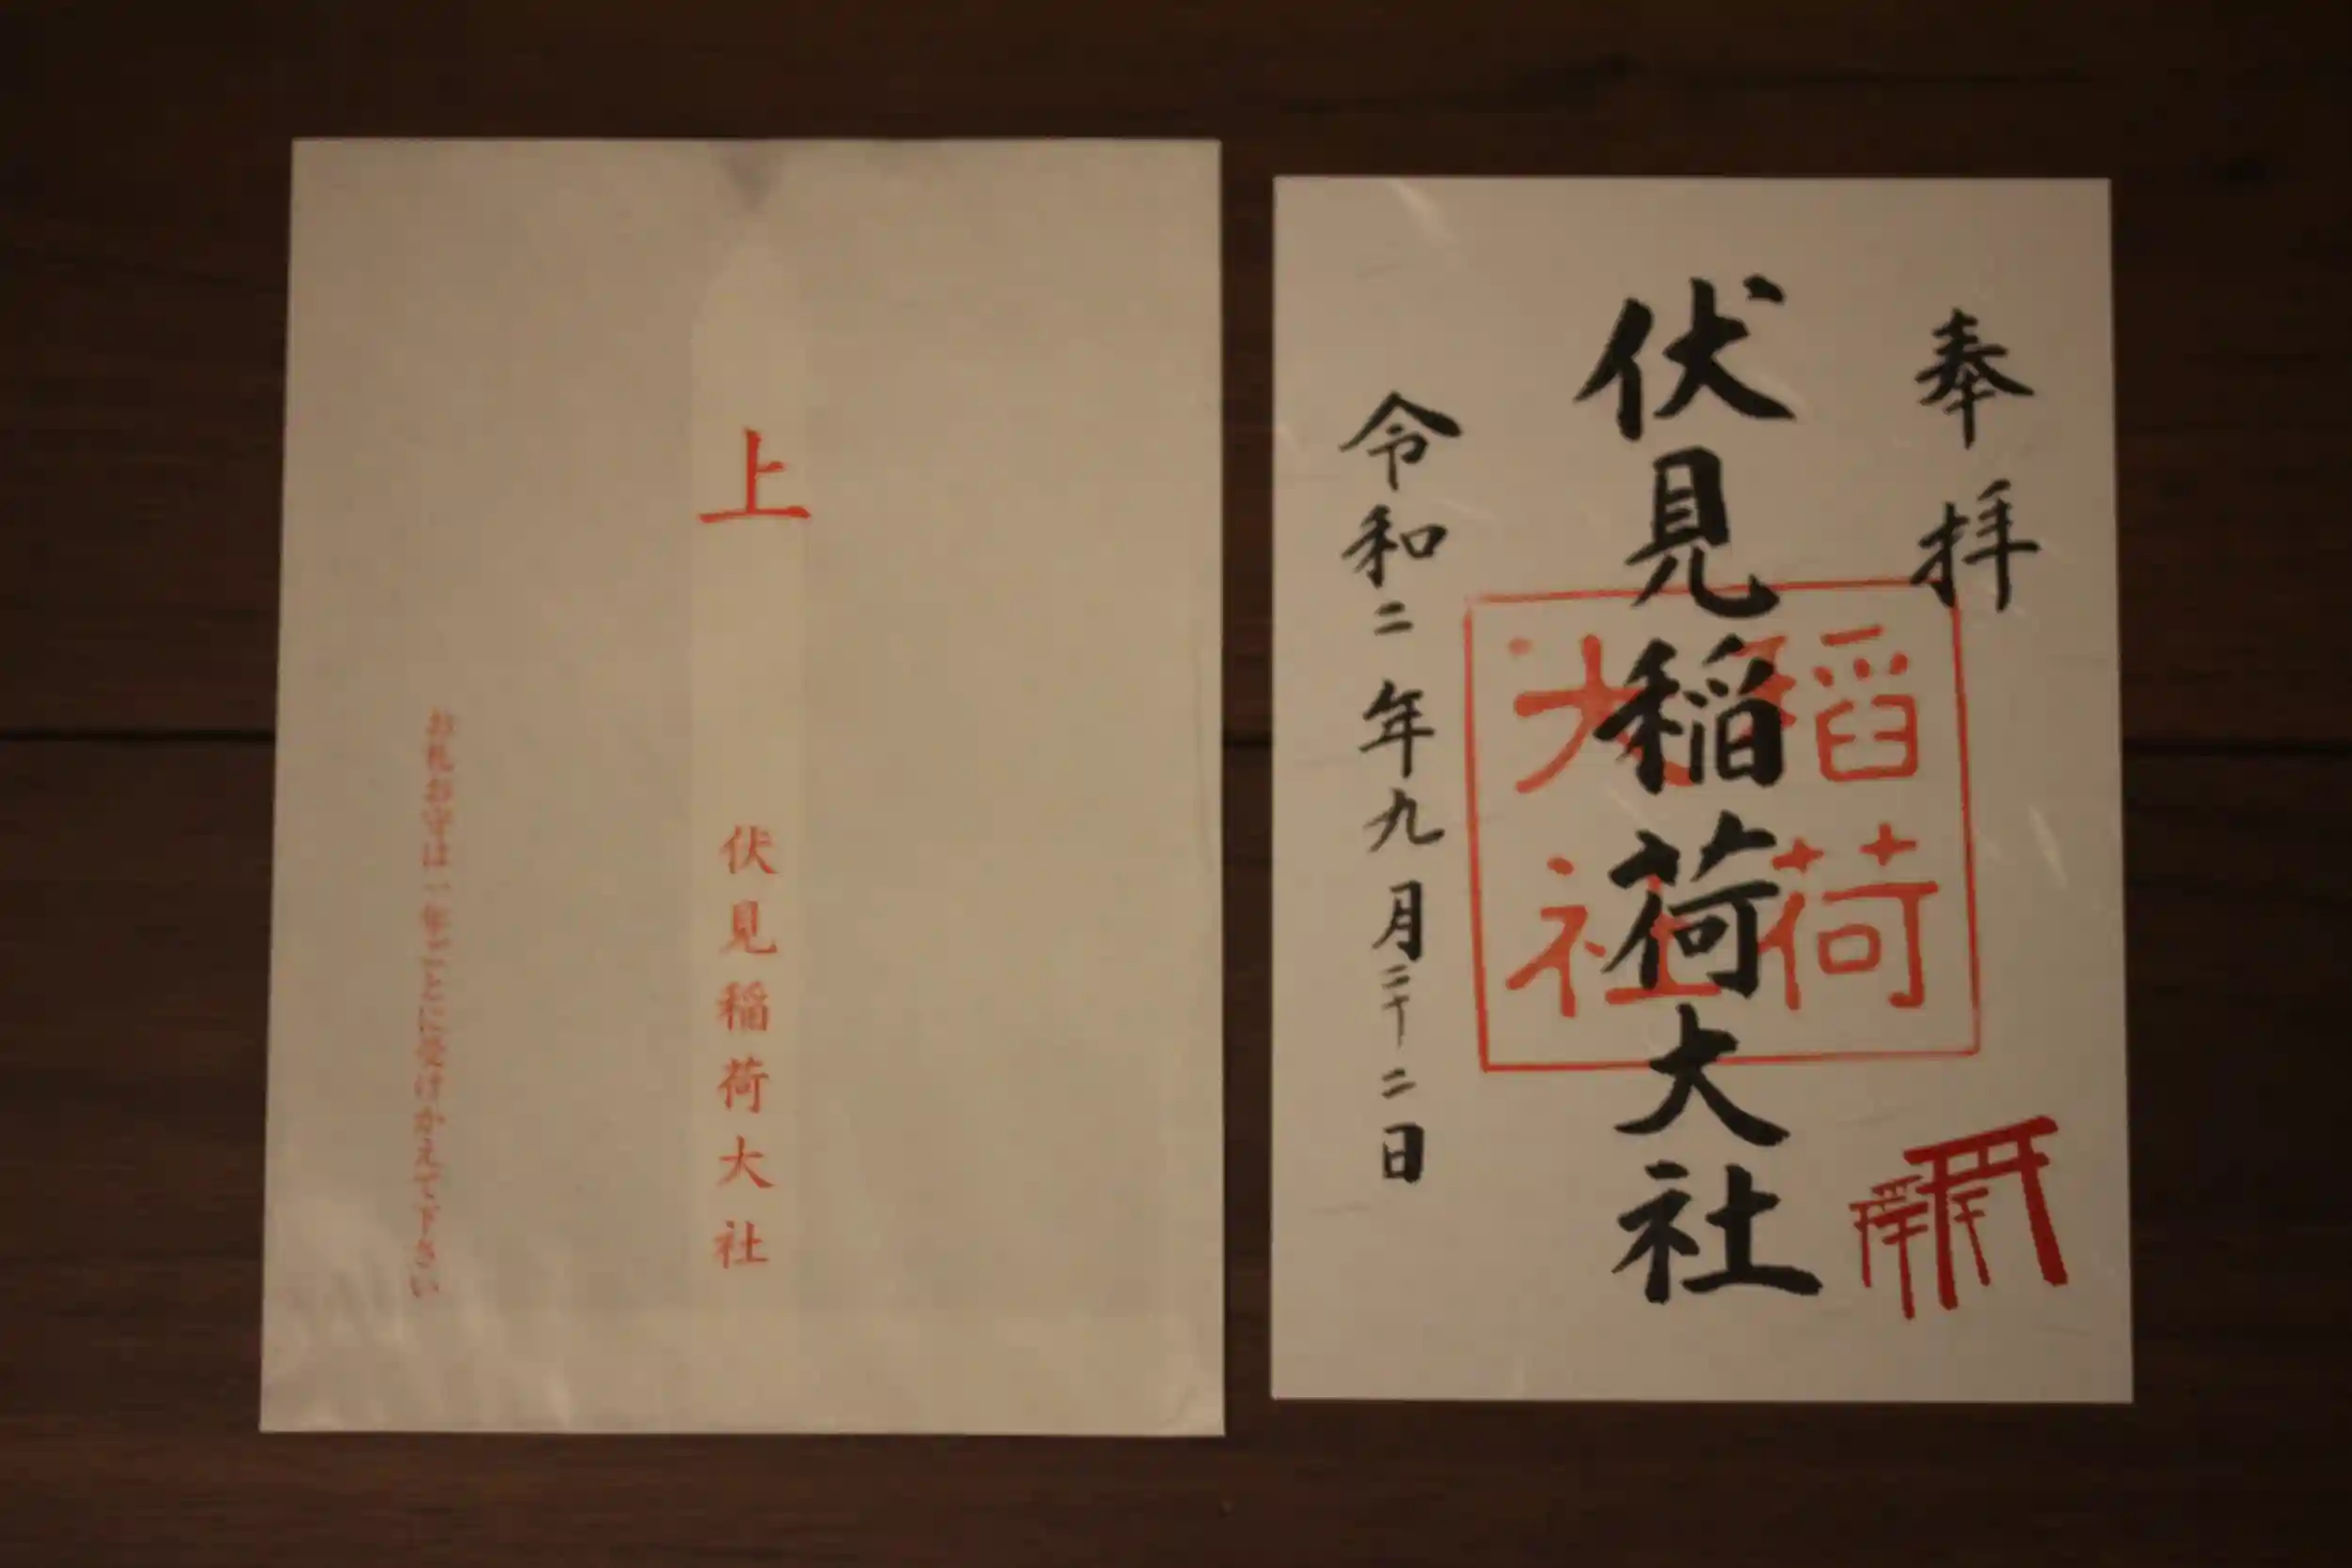 上
伏見稲荷大社
お札お守は一年ごとに受けかえて下さい
奉拝
伏見稲荷大社
稲荷
大社
令和二年九月二十二日